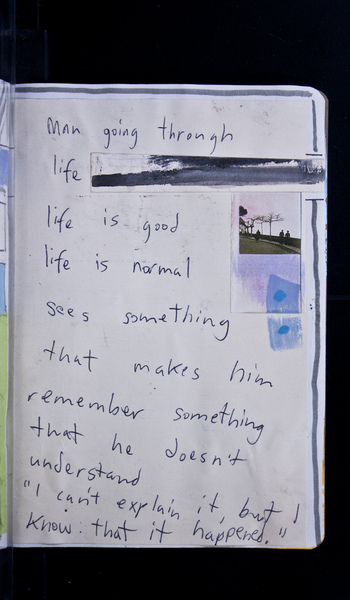 Man going through
life
life is good
life is normal
sees something
that makes him
remember something
that he doesn't
understand
"I can't explain it, but I
know that it happened."